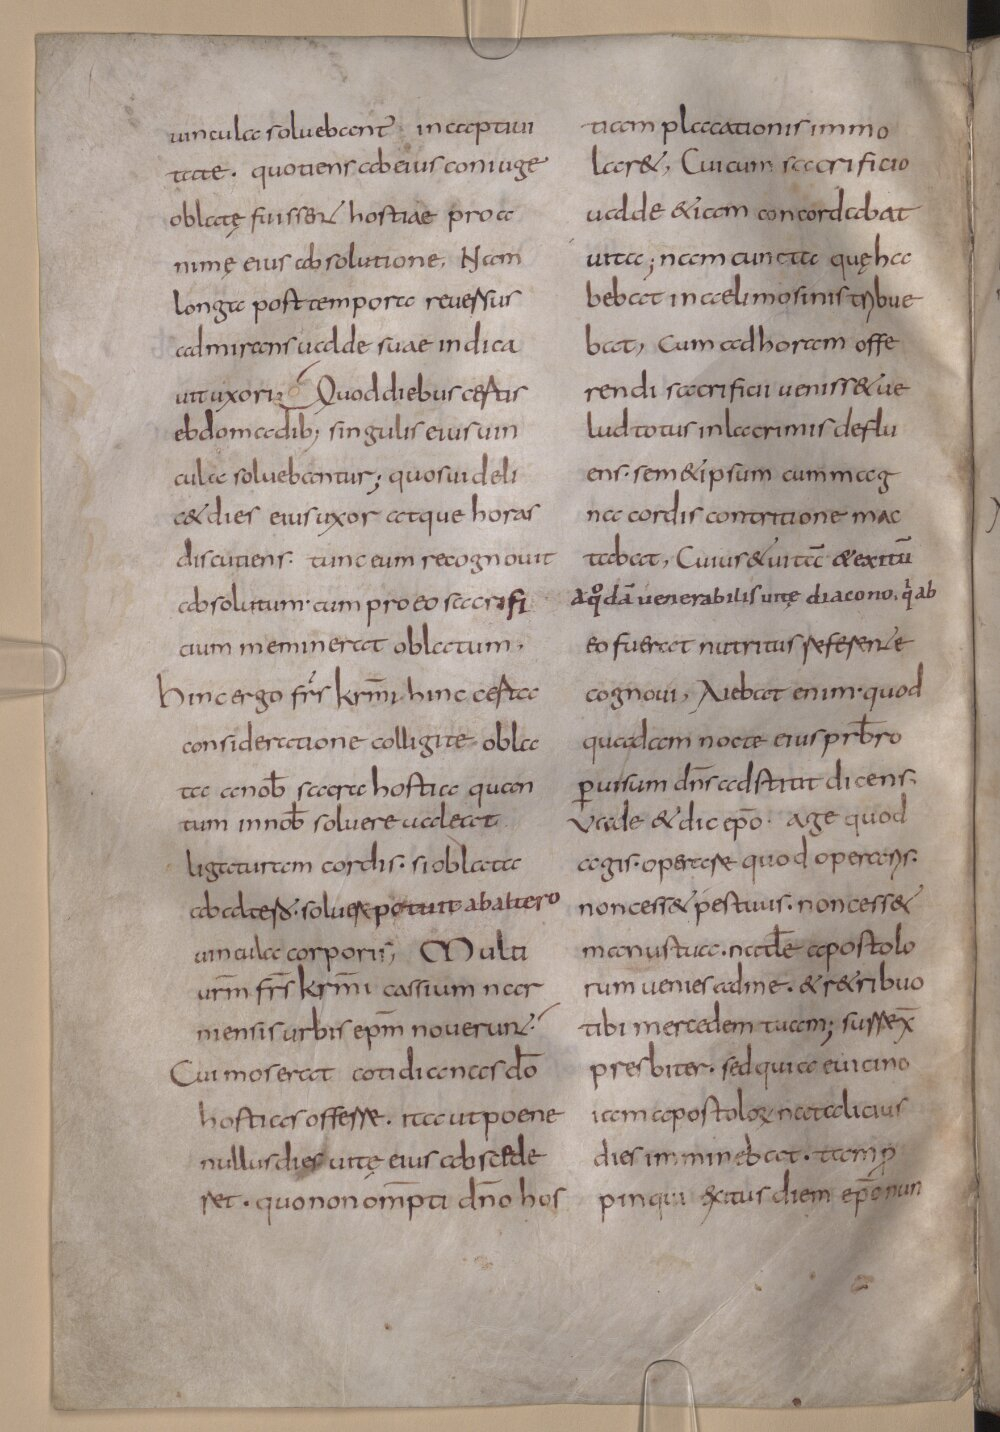 uincula soluebant in captiui
tate. quotiens ab eius coniuge
oblatę fuissent hostiae pro a
nimę eius absolutione. Nam
longa post tempora reuersus
admirans ualde suae indica
uit uxori; Quod diebus certis
ebdomadib; singulis eius uin
cula soluebantur; quos uideli
c& dies eius uxor atque horas
discutiens. tunc eum recognouit
absolutum. cum pro eo sacrifi
cium meminerat oblatum,
Hinc ergo frs̄ krm̄i. hinc certa
consideratione colligite. obla
ta a nob̄ sacra hostia quan
tum in nob̄ soluere ualeat
ligaturam cordis. si oblata
ab altero. soluere potuit ab altero
uincula corporis, Multi
urm̄ frs̄ krm̄i cassium nar
niensis urbis epm̄ nouerunt.
Cui mos erat cotidianas dō
hostias offerre. ita ut poene
nullus dies uitę eius abscede
ret. quo non om̄pti dn̄o hos
tiam placationis immo
lar&, Cui cum sacrificio
ualde &iam concordabat
uita; nam cuncta quę ha
bebat in aelimosinis tribue
bat, Cum ad horam offe
rendi sacrificii ueniss& ue
lud totus in lacrimis deflu
ens. sem&ipsum cum mag
na cordis contritione mac
tabat, Cuius & uitā & exitū
a qodā uenerabilis uitę diacono. qi ab
eo fuerat nutritus referente
cognoui, Aiebat enim. quod
quadam nocte eius prb̄ro
ꝑ uisum dn̄s adstitit dicens.
Vade & dic epō. age quod
agis. operare quod operaris.
non cess& pes tuus. non cess&
manus tua. natl̄e apostolo
rum uenies ad me. & r&ribuo
tibi mercedem tuam; surrex̄
presbiter. sed quia e uicino
iam apostoloꝝ natalicius
dies imminebat. tam pro
pinqui exitus diem epō nun